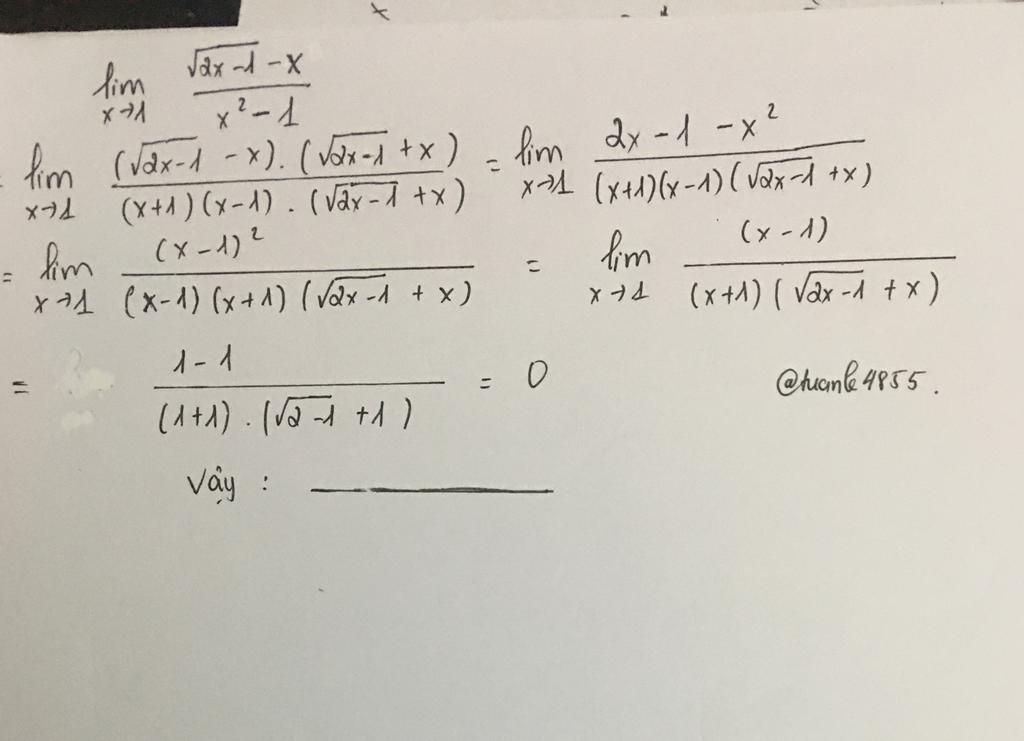 lim x→1 (√(2x-1) - x)/(x² - 1)
= lim x→1 ((√(2x-1) - x).(√(2x-1) + x))/((x+1)(x-1).(√(2x-1) + x)) = lim x→1 (2x - 1 - x²)/((x+1)(x-1)(√(2x-1) + x))
= lim x→1 (x-1)²/((x-1)(x+1)(√(2x-1) + x)) = lim x→1 (x-1)/((x+1)(√(2x-1) + x))
= (1-1)/((1+1).(√(2-1) + 1)) = 0 @tuanle4855.
Vậy :